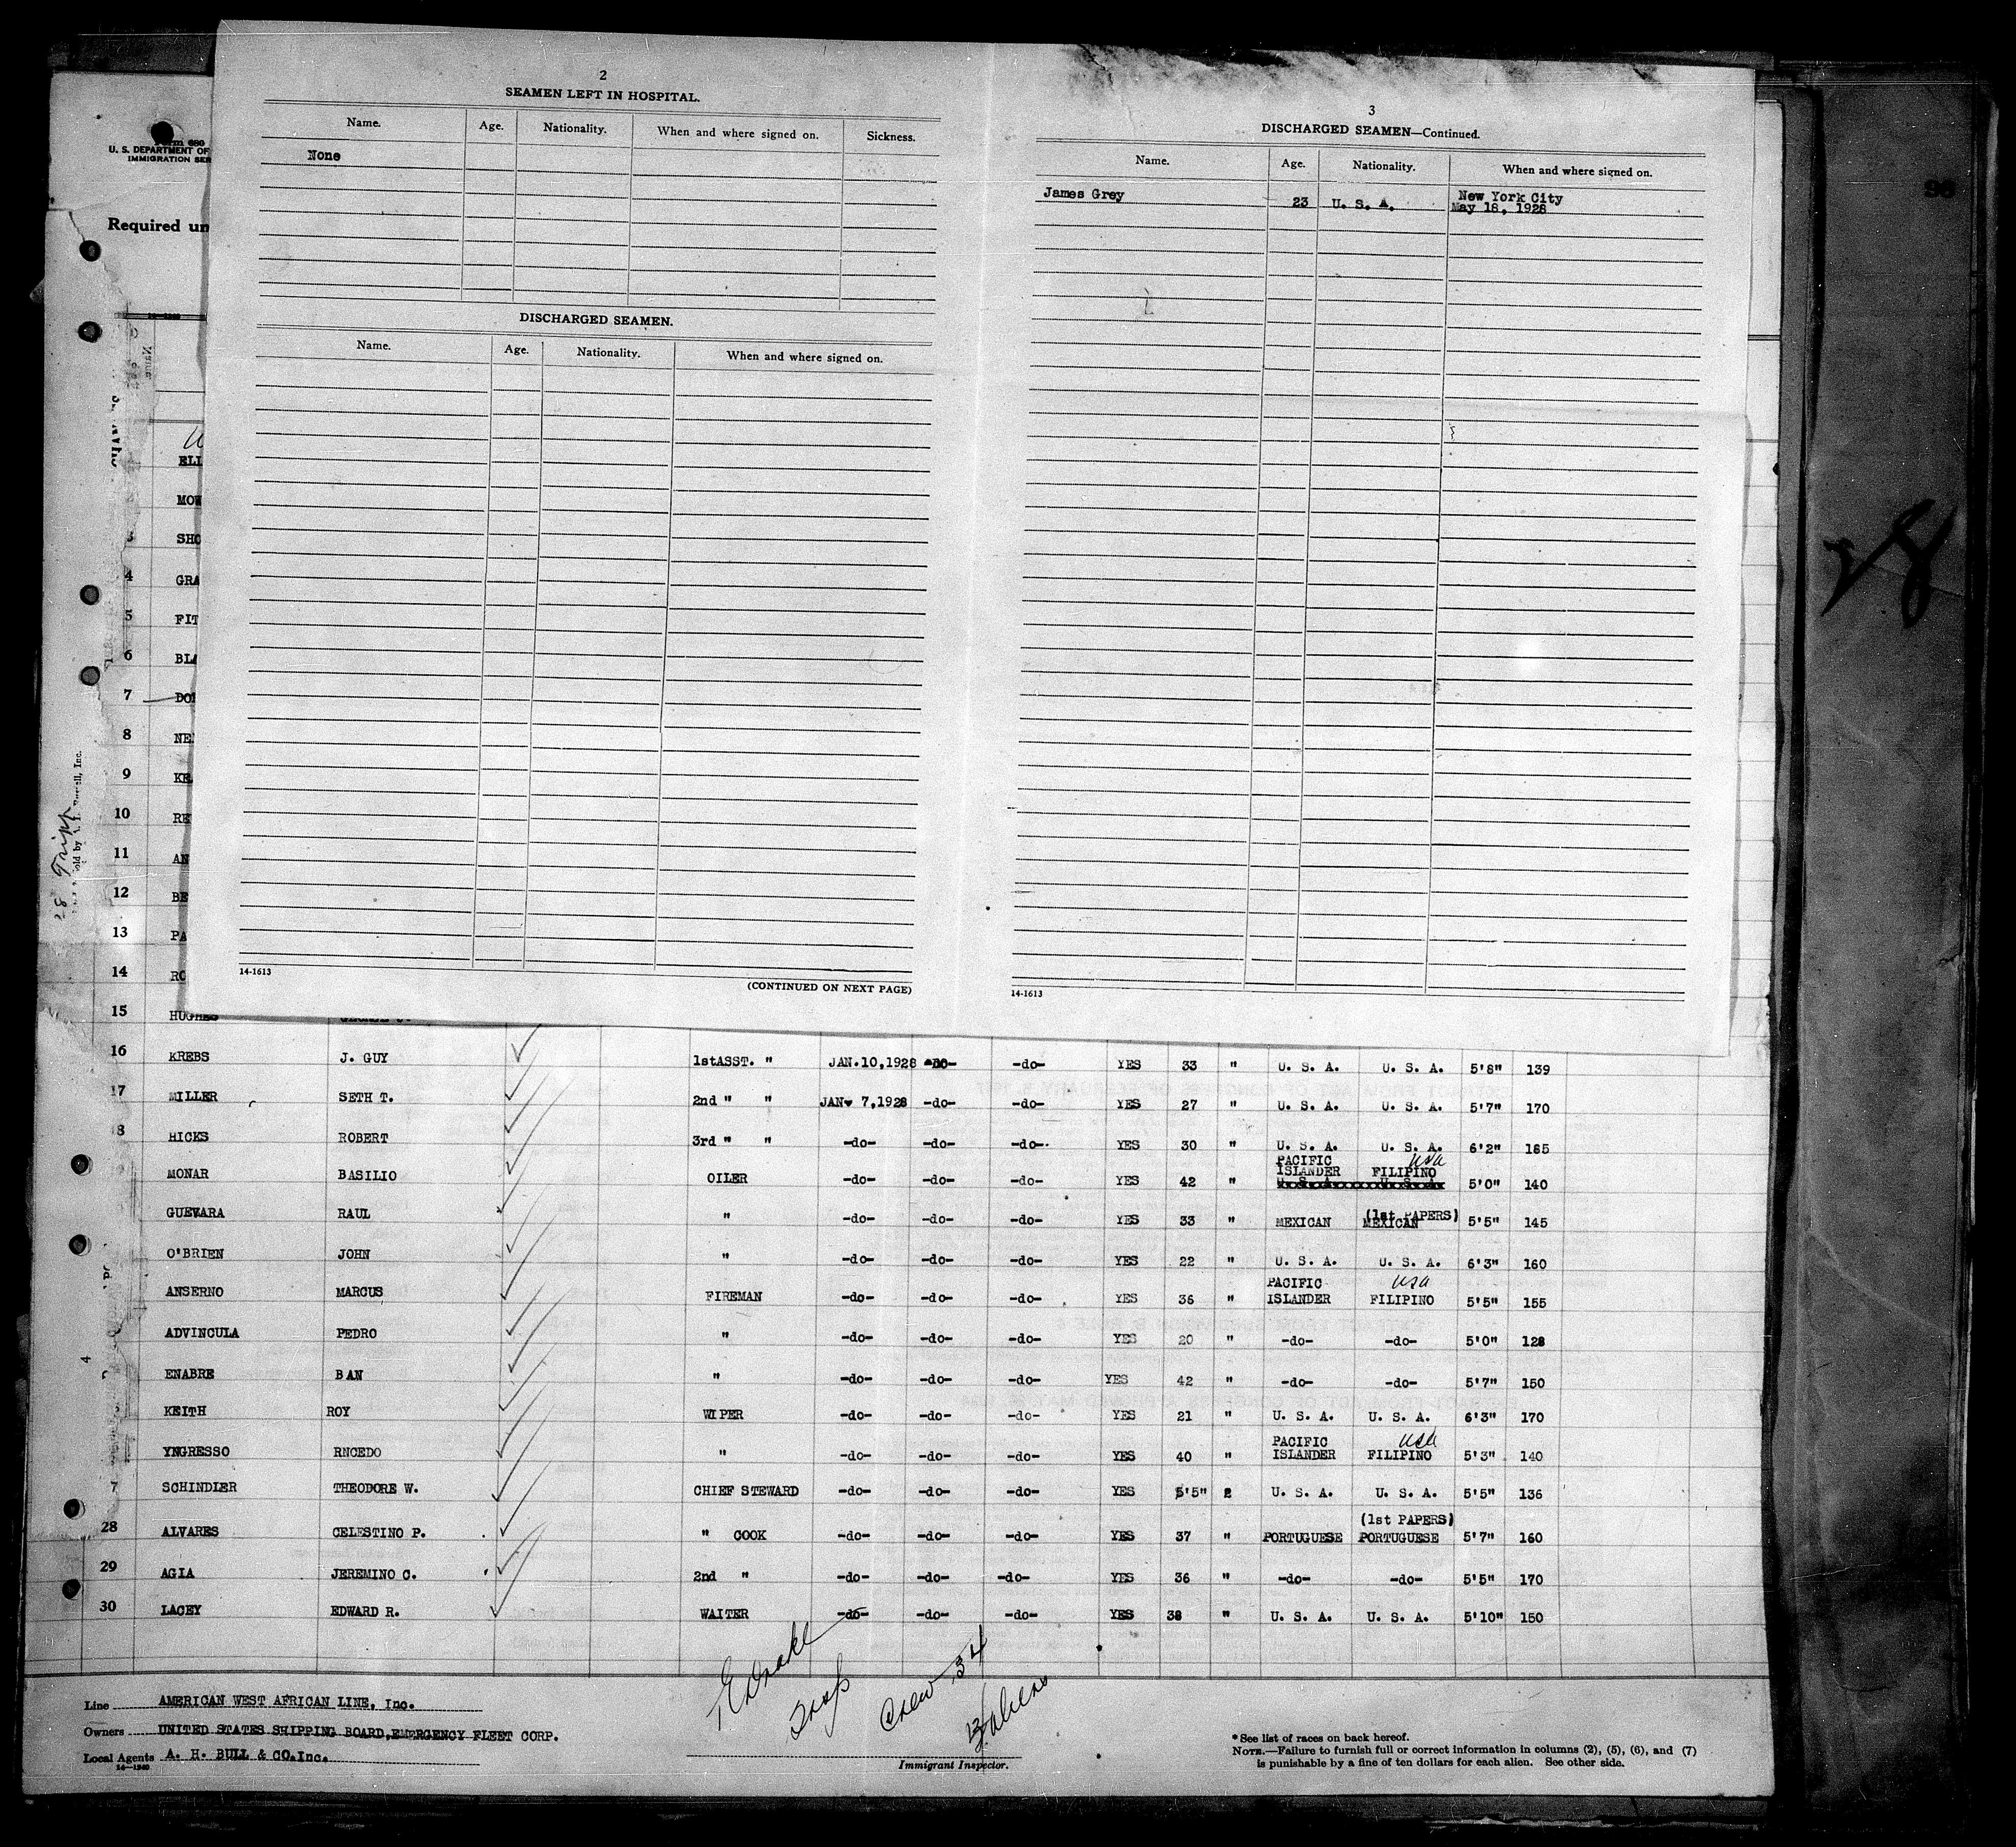 2
SEAMEN LEFT IN HOSPITAL.
Name. Age. Nationality. When and where signed on. Sickness.
None
DISCHARGED SEAMEN.
Name. Age. Nationality. When and where signed on.
14-1613
(CONTINUED ON NEXT PAGE)
3
DISCHARGED SEAMEN—Continued.
Name. Age. Nationality. When and where signed on.
James Grey 23 U. S. A. New York City
May 18, 1928
14-1613
98
Form 680
U. S. DEPARTMENT OF
IMMIGRATION SER
Required un
ELI
MOW
3 SHO
4 GRA
5 FIT
6 BLA
7 DON
8 NE
9 KR
10 RE
11 AN
12 BE
13 PA
14 RO
15 HUGHES GEORGE J.
16 KREBS J. GUY 1stASST. " JAN.10,1928 -do- -do- YES 33 " U. S. A. U. S. A. 5'8" 139
17 MILLER SETH T. 2nd " " JAN. 7,1928 -do- -do- YES 27 " U. S. A. U. S. A. 5'7" 170
8 HICKS ROBERT 3rd " " -do- -do- -do- YES 30 " U. S. A. U. S. A. 6'2" 185
MONAR BASILIO OILER -do- -do- -do- YES 42 " PACIFIC ISLANDER FILIPINO USA U. S. A. U. S. A. 5'0" 140
GUEVARA RAUL " -do- -do- -do- YES 33 " MEXICAN (1st PAPERS) MEXICAN 5'5" 145
O'BRIEN JOHN " -do- -do- -do- YES 22 " U. S. A. U. S. A. 6'3" 160
ANSERNO MARCUS FIREMAN -do- -do- -do- YES 36 " PACIFIC ISLANDER USA FILIPINO 5'5" 155
ADVINCULA PEDRO " -do- -do- -do- YES 20 " -do- -do- 5'0" 128
ENABRE BAN " -do- -do- -do- YES 42 " -do- -do- 5'7" 150
KEITH ROY WIPER -do- -do- -do- YES 21 " U. S. A. U. S. A. 6'3" 170
YNGRESSO RNCEDO " -do- -do- -do- YES 40 " PACIFIC ISLANDER USA FILIPINO 5'3" 140
7 SCHINDLER THEODORE W. CHIEF STEWARD -do- -do- -do- YES 5'5" 2 U. S. A. U. S. A. 5'5" 136
28 ALVARES CELESTINO P. " COOK -do- -do- -do- YES 37 " PORTUGUESE (1st PAPERS) PORTUGUESE 5'7" 160
29 AGIA JEREMINO C. 2nd " -do- -do- -do- YES 36 " -do- -do- 5'5" 170
30 LACEY EDWARD R. WAITER -do- -do- -do- YES 38 " U. S. A. U. S. A. 5'10" 150
Crew 34
Line AMERICAN WEST AFRICAN LINE, Inc.
Owners UNITED STATES SHIPPING BOARD,EMERGENCY FLEET CORP.
Local Agents A. H. BULL & CO.Inc.
14—1240
Immigrant Inspector.
*See list of races on back hereof.
NOTE.—Failure to furnish full or correct information in columns (2), (5), (6), and (7)
is punishable by a fine of ten dollars for each alien. See other side.